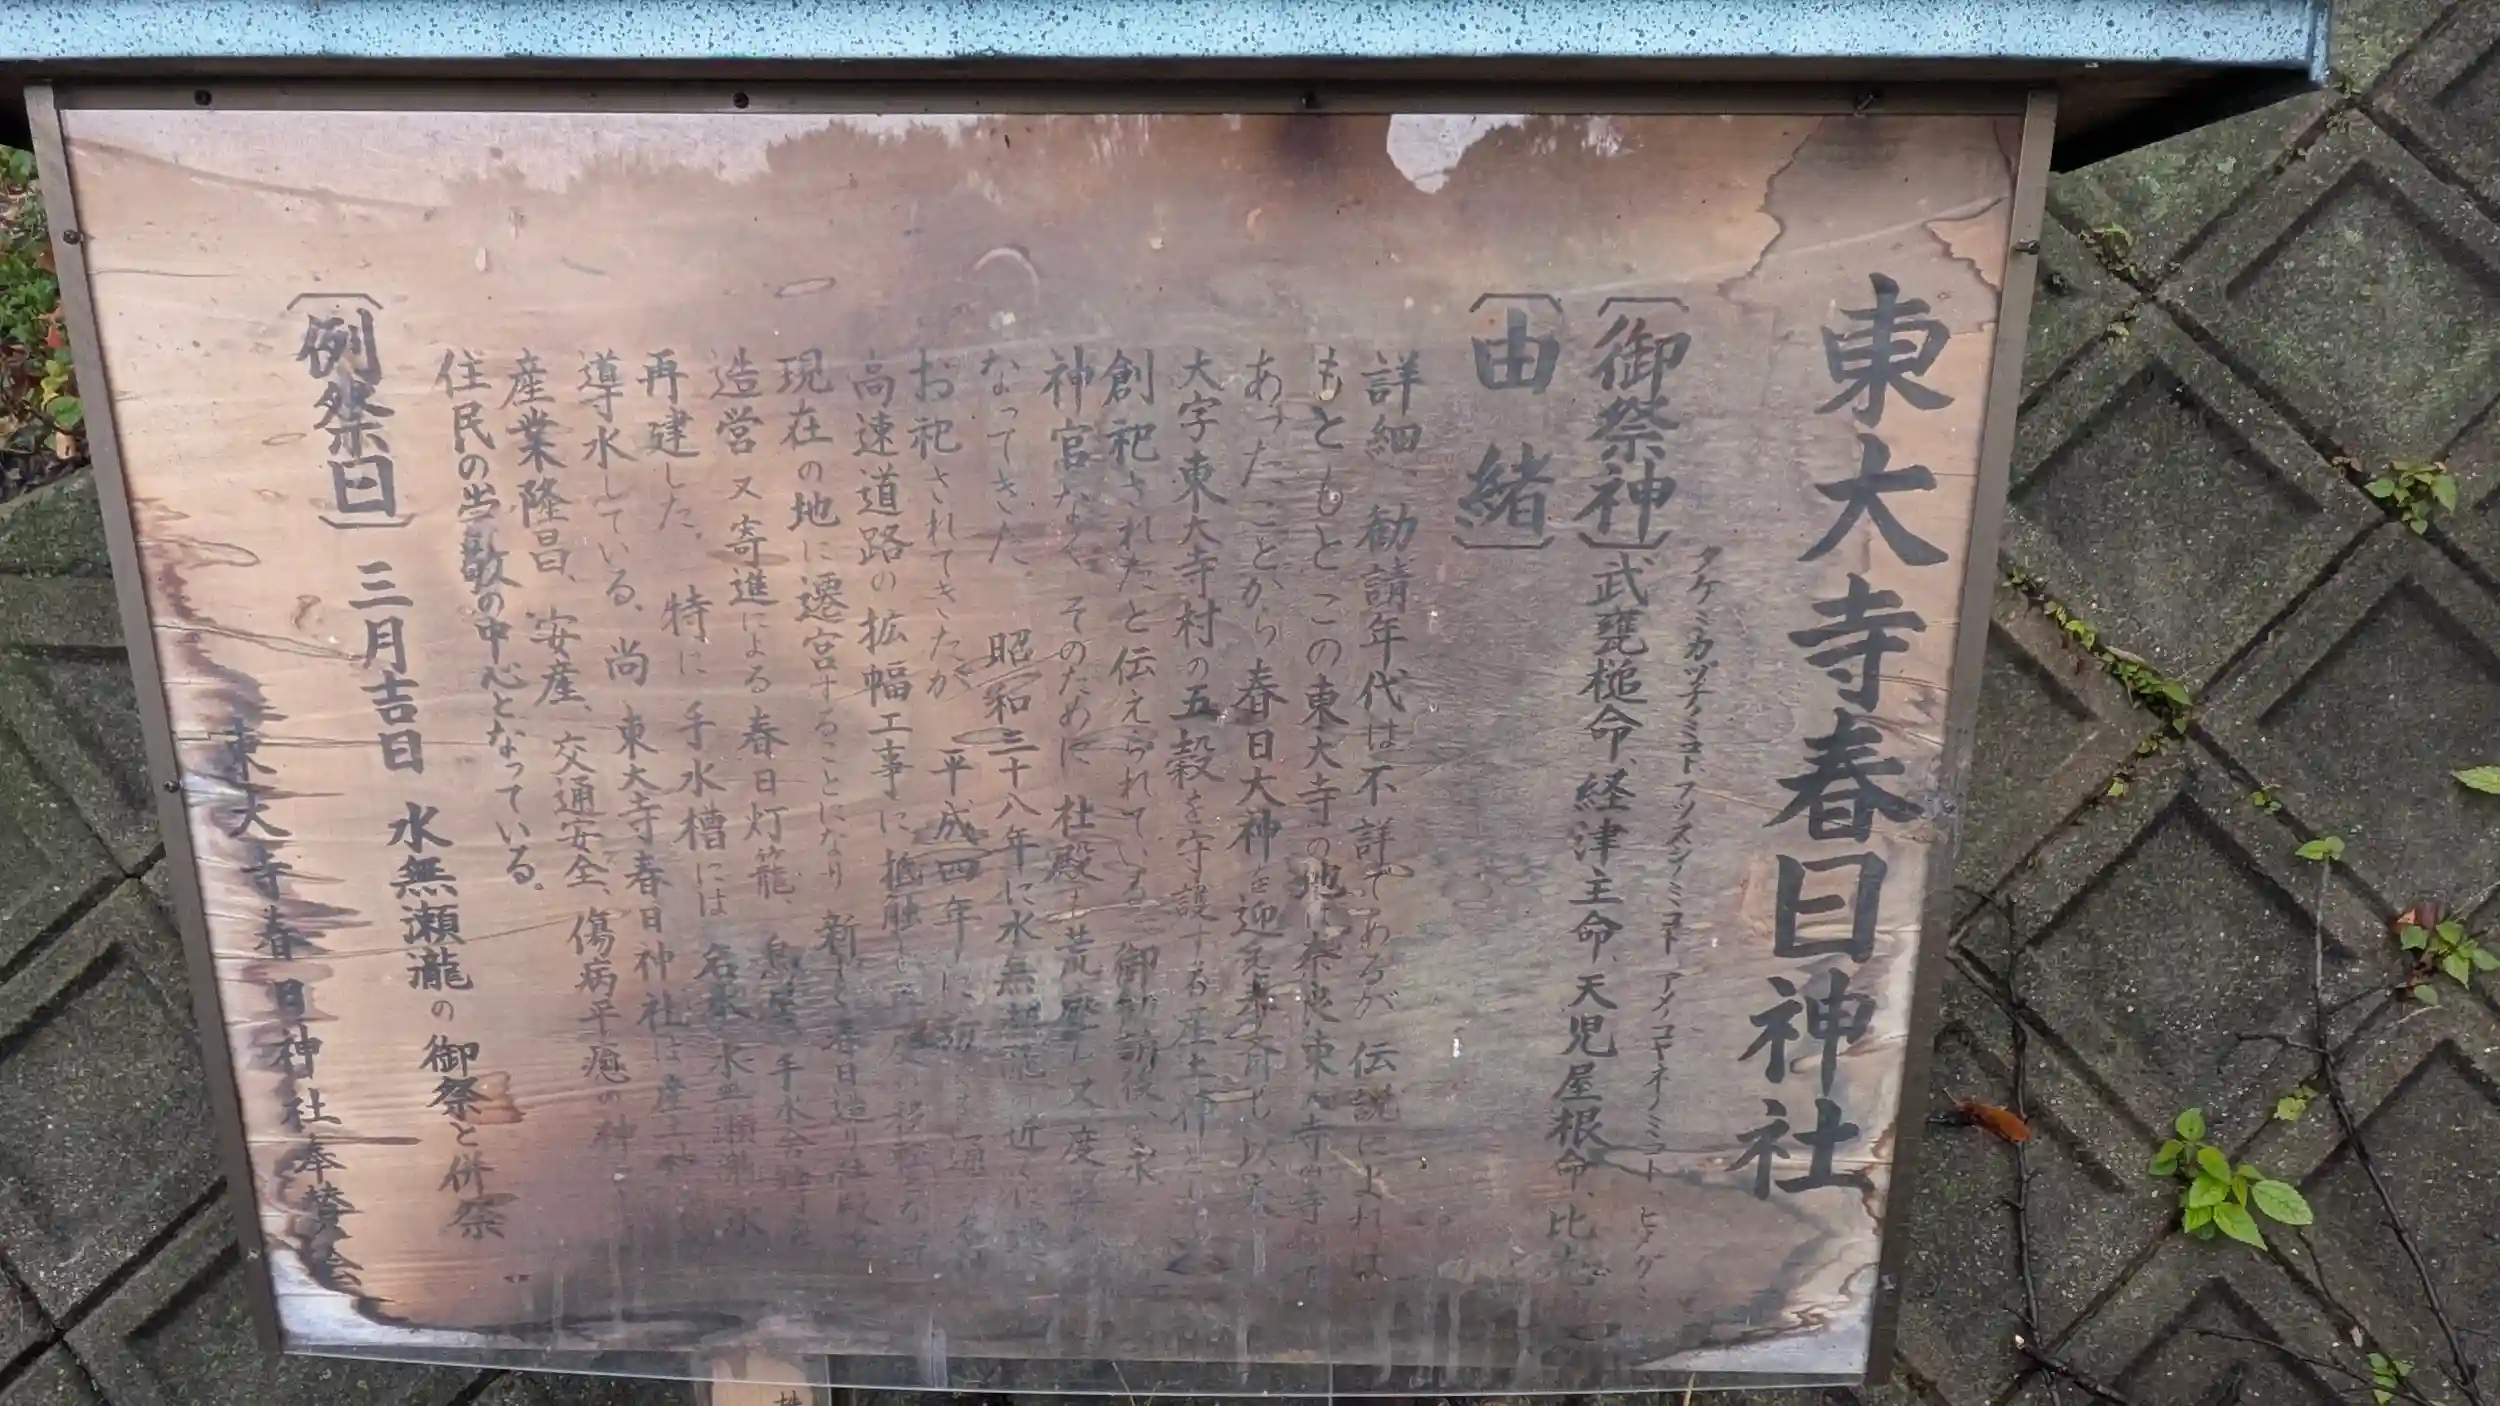 東大寺春日神社
タケミカヅチノミコト、フツヌシノミコト アメノコヤネノミコト、ヒメ
〔御祭神〕武甕槌命、経津主命、天児屋根命、比
〔由 緒〕
詳細、勧請年代は不詳であるが 伝説によれば
もともと この東大寺の地は奈良東大寺の寺
あったことから 春日大神を迎え奉斎せ以来
大字東大寺村の五穀を守護する産土神と
創祀されたと伝えられている 御勧請後、永
神官なく そのために 社殿も荒廃し又度
なってきた 昭和三十八年に水無瀬滝の近くに
お祀されてきたが 平成四年に
高速道路の拡幅工事に抵触し 移転
現在の地に遷宮することになり 新しく春日造り社殿
造営 又 寄進による春日灯籠、鳥居、手水舎
再建した。特に手水槽には 名水 水無瀬瀧
導水している。尚 東大寺春日神社は産土神
産業隆昌、安産、交通安全、傷病平癒の神
住民の崇敬の中心となっている。
〔例祭日〕三月吉日 水無瀬瀧の御祭と併祭
東大寺春日神社奉賛会